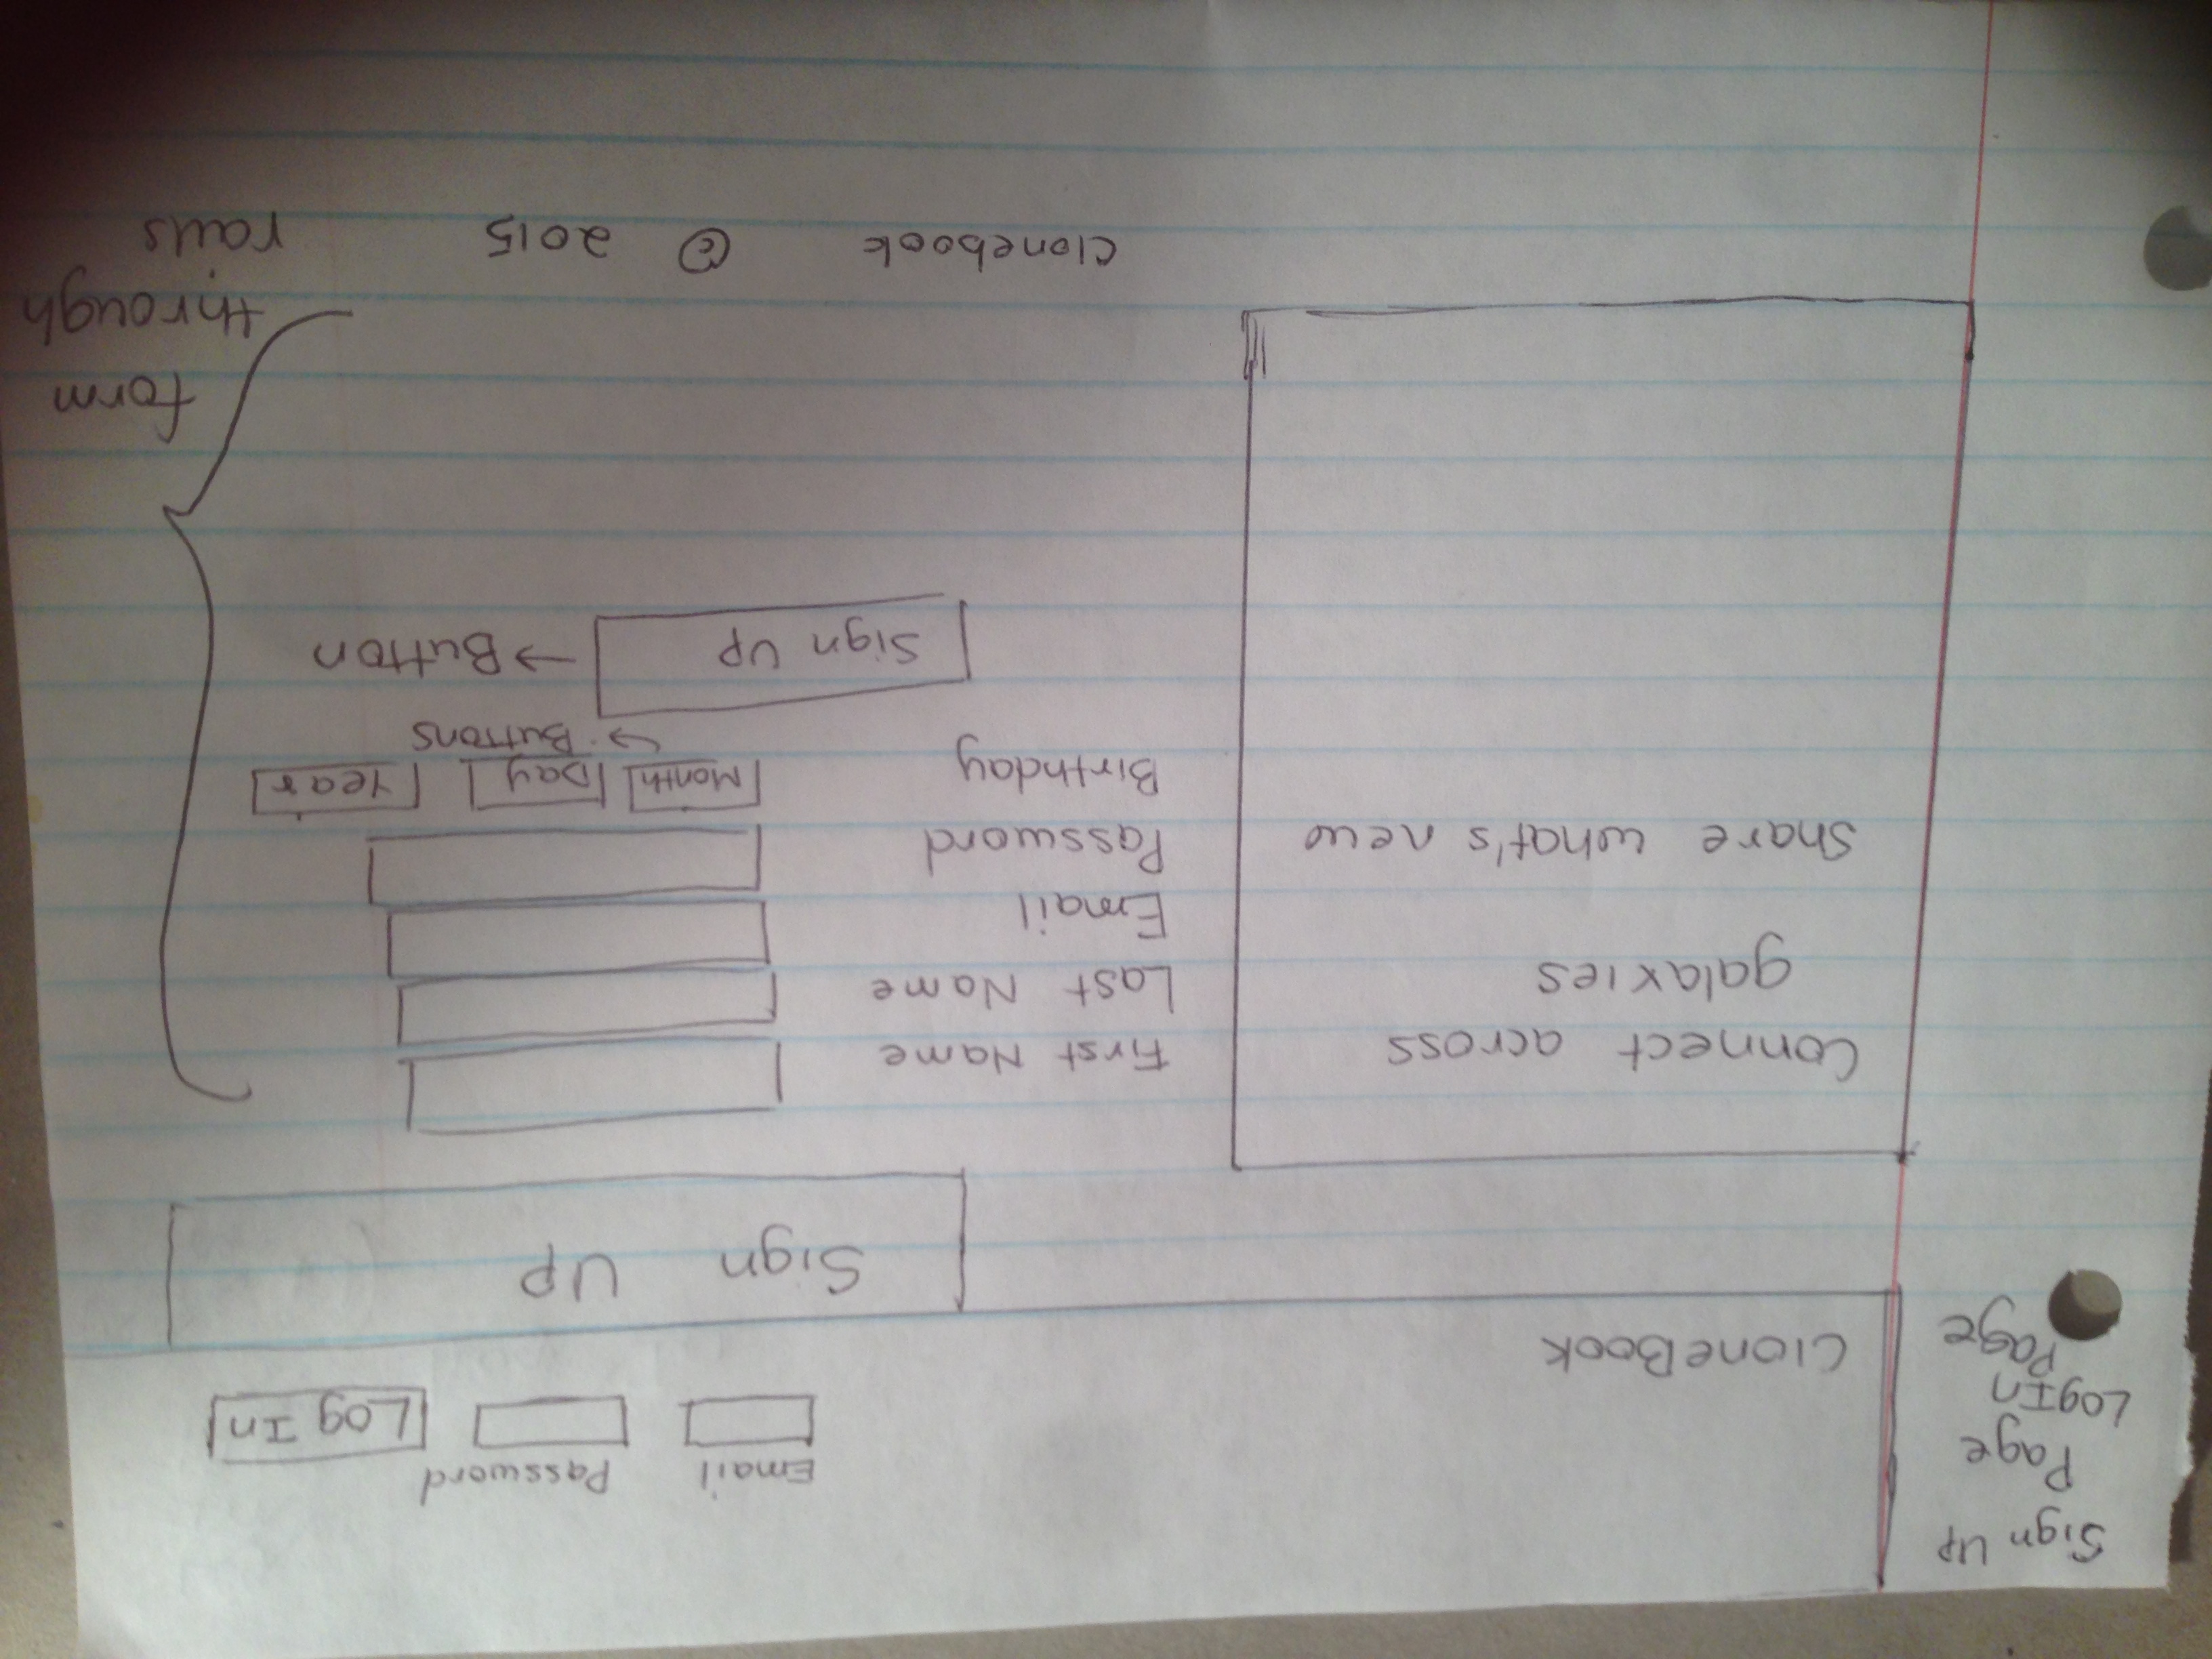 Sign Up
Page
LogIn
Page
Email Password
Log In
CloneBook
Sign Up
Connect across
galaxies
Share what's new
First Name
Last Name
Email
Password
Birthday Month Day Year
Buttons
Sign Up → Button
form
through
rails
Clonebook © 2015